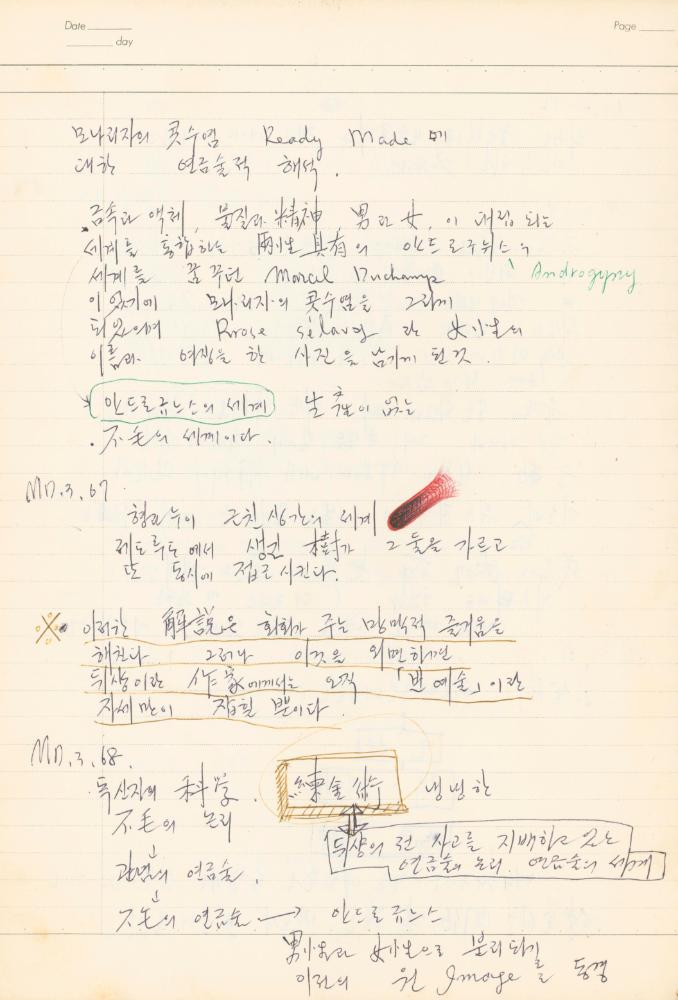 Date
day
Page
모나리자의 콧수염 Ready Made 에
대한 연금술적 해석.
금속과 액체, 물질과 精神 男과 女, 이 대립 되는
세계를 통합하는 具有의 안드로규뉘스의
세계를 꿈꾸던 Marcel Duchamp
Androgyny
이 있기에 모나.리자의 콧수염을 그리게
되었으며 Rrose sélavy 란 女性의
이름과 여장을 한 사진을 남기게 된것.
안드로규뉴스의 세계 生産이 없는
不毛의 세계이다.
MD.3.67
형과 누이 근친 상간의 세계
페도뤽도에서 생긴 樹가 그 둘을 가르고
또 동시에 접근시킨다.
이러한 解説은 회화가 주는 망막적 즐거움을
해친다. 그러나 이것을 외면하면
뒤샹이란 作家에게서는 오직 「반예술」이란
자세만이 잡힐 뿐이다.
MD.3.68.
독신자의 科学. 練金術 냉냉한
不毛의 논리
뒤샹의 전 사고를 지배하고 있는
연금술의 논리. 연금술의 세계
관념의 연금술.
不毛의 연금술 → 안드로규뉴스
男性과 女性으로 분리되기
이전의 원 Image를 동경